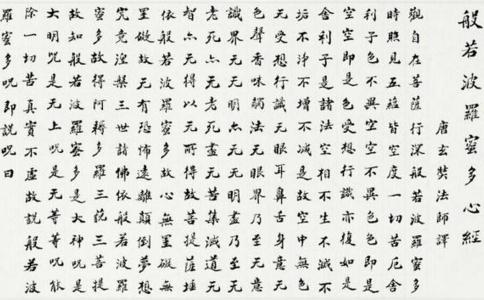 般若波羅蜜多心經
唐玄奘法師譯
觀自在菩薩行深般若波羅蜜多
時照見五蘊皆空度一切苦厄舍
利子色不異空空不異色色即是
空空即是色受想行識亦復如是
舍利子是諸法空相不生不滅不
垢不淨不增不減是故空中无色
无受想行識无眼耳鼻舌身意无
色聲香味觸法无眼界乃至无意
識界无无明亦无无明盡乃至无
老死亦无老死盡无苦集滅道无
智亦无得以无所得故菩提薩埵
依般若波羅蜜多故心無罣礙無
罣礙故无有恐怖遠離顛倒夢想
究竟涅槃三世諸佛依般若波羅
蜜多故得阿耨多羅三藐三菩提
故知般若波羅蜜多是大神呪是
大明呪是无上呪是无等等呪能
除一切苦真實不虛故說般若波
羅蜜多呪即說呪曰